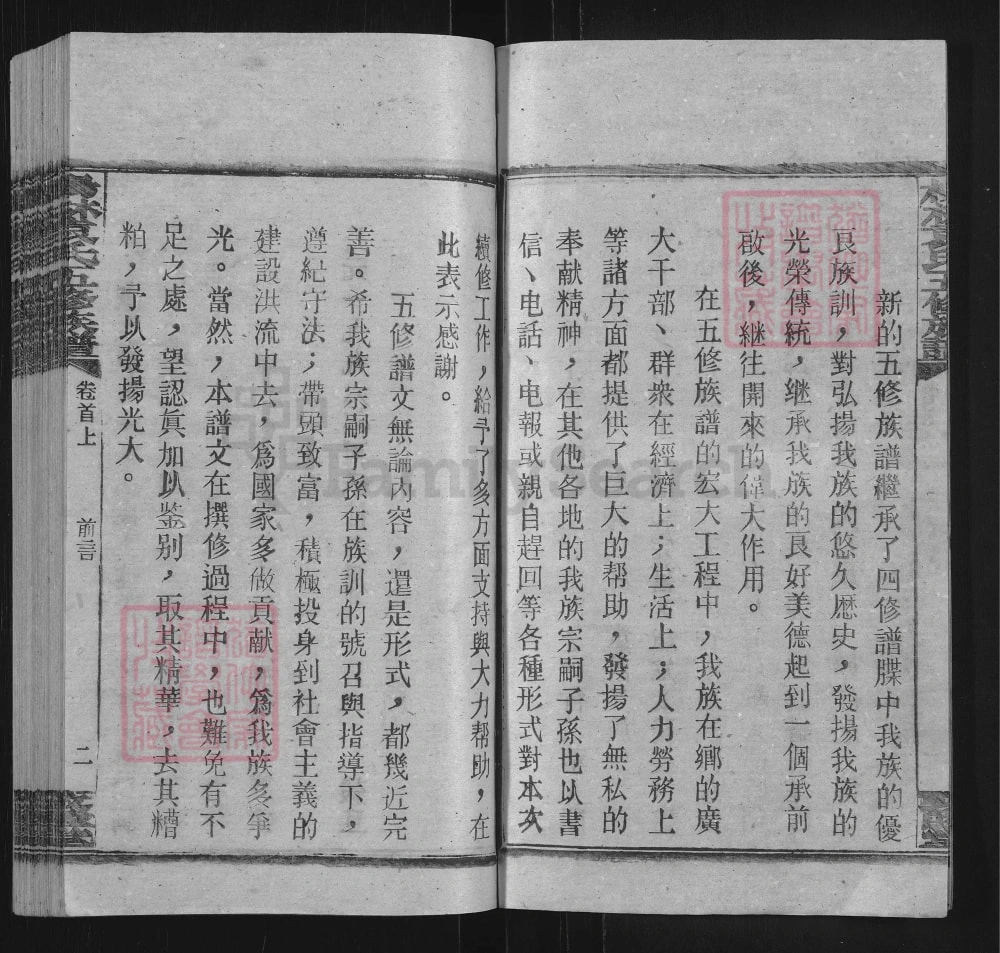 新的五修族譜繼承了四修譜牒中我族的優
良族訓，對弘揚我族的悠久歷史，發揚我族的
光榮傳統，继承我族的良好美德起到一個承前
啟後，继往開來的偉大作用。
在五修族譜的宏大工程中，我族在鄉的廣
大干部、群衆在經濟上；生活上；人力勞務上
等諸方面都提供了巨大的帮助，發揚了無私的
奉献精神，在其他各地的我族宗嗣子孫也以書
信、电話、电報或親自趕回等各種形式對本次
續修工作，給予了多方面支持與大力帮助，在
此表示感謝。
五修譜文無論内容，還是形式，都幾近完
善。希我族宗嗣子孫在族訓的號召與指導下，
遵紀守法；帶頭致富，積極投身到社會主義的
建設洪流中去，爲國家多做貢献，爲我族多爭
光。當然，本譜文在撰修過程中，也難免有不
足之處，望認眞加以鉴别，取其精華，去其糟
粕，予以發揚光大。
五修族譜
卷首上
前言
二
FamilySearch